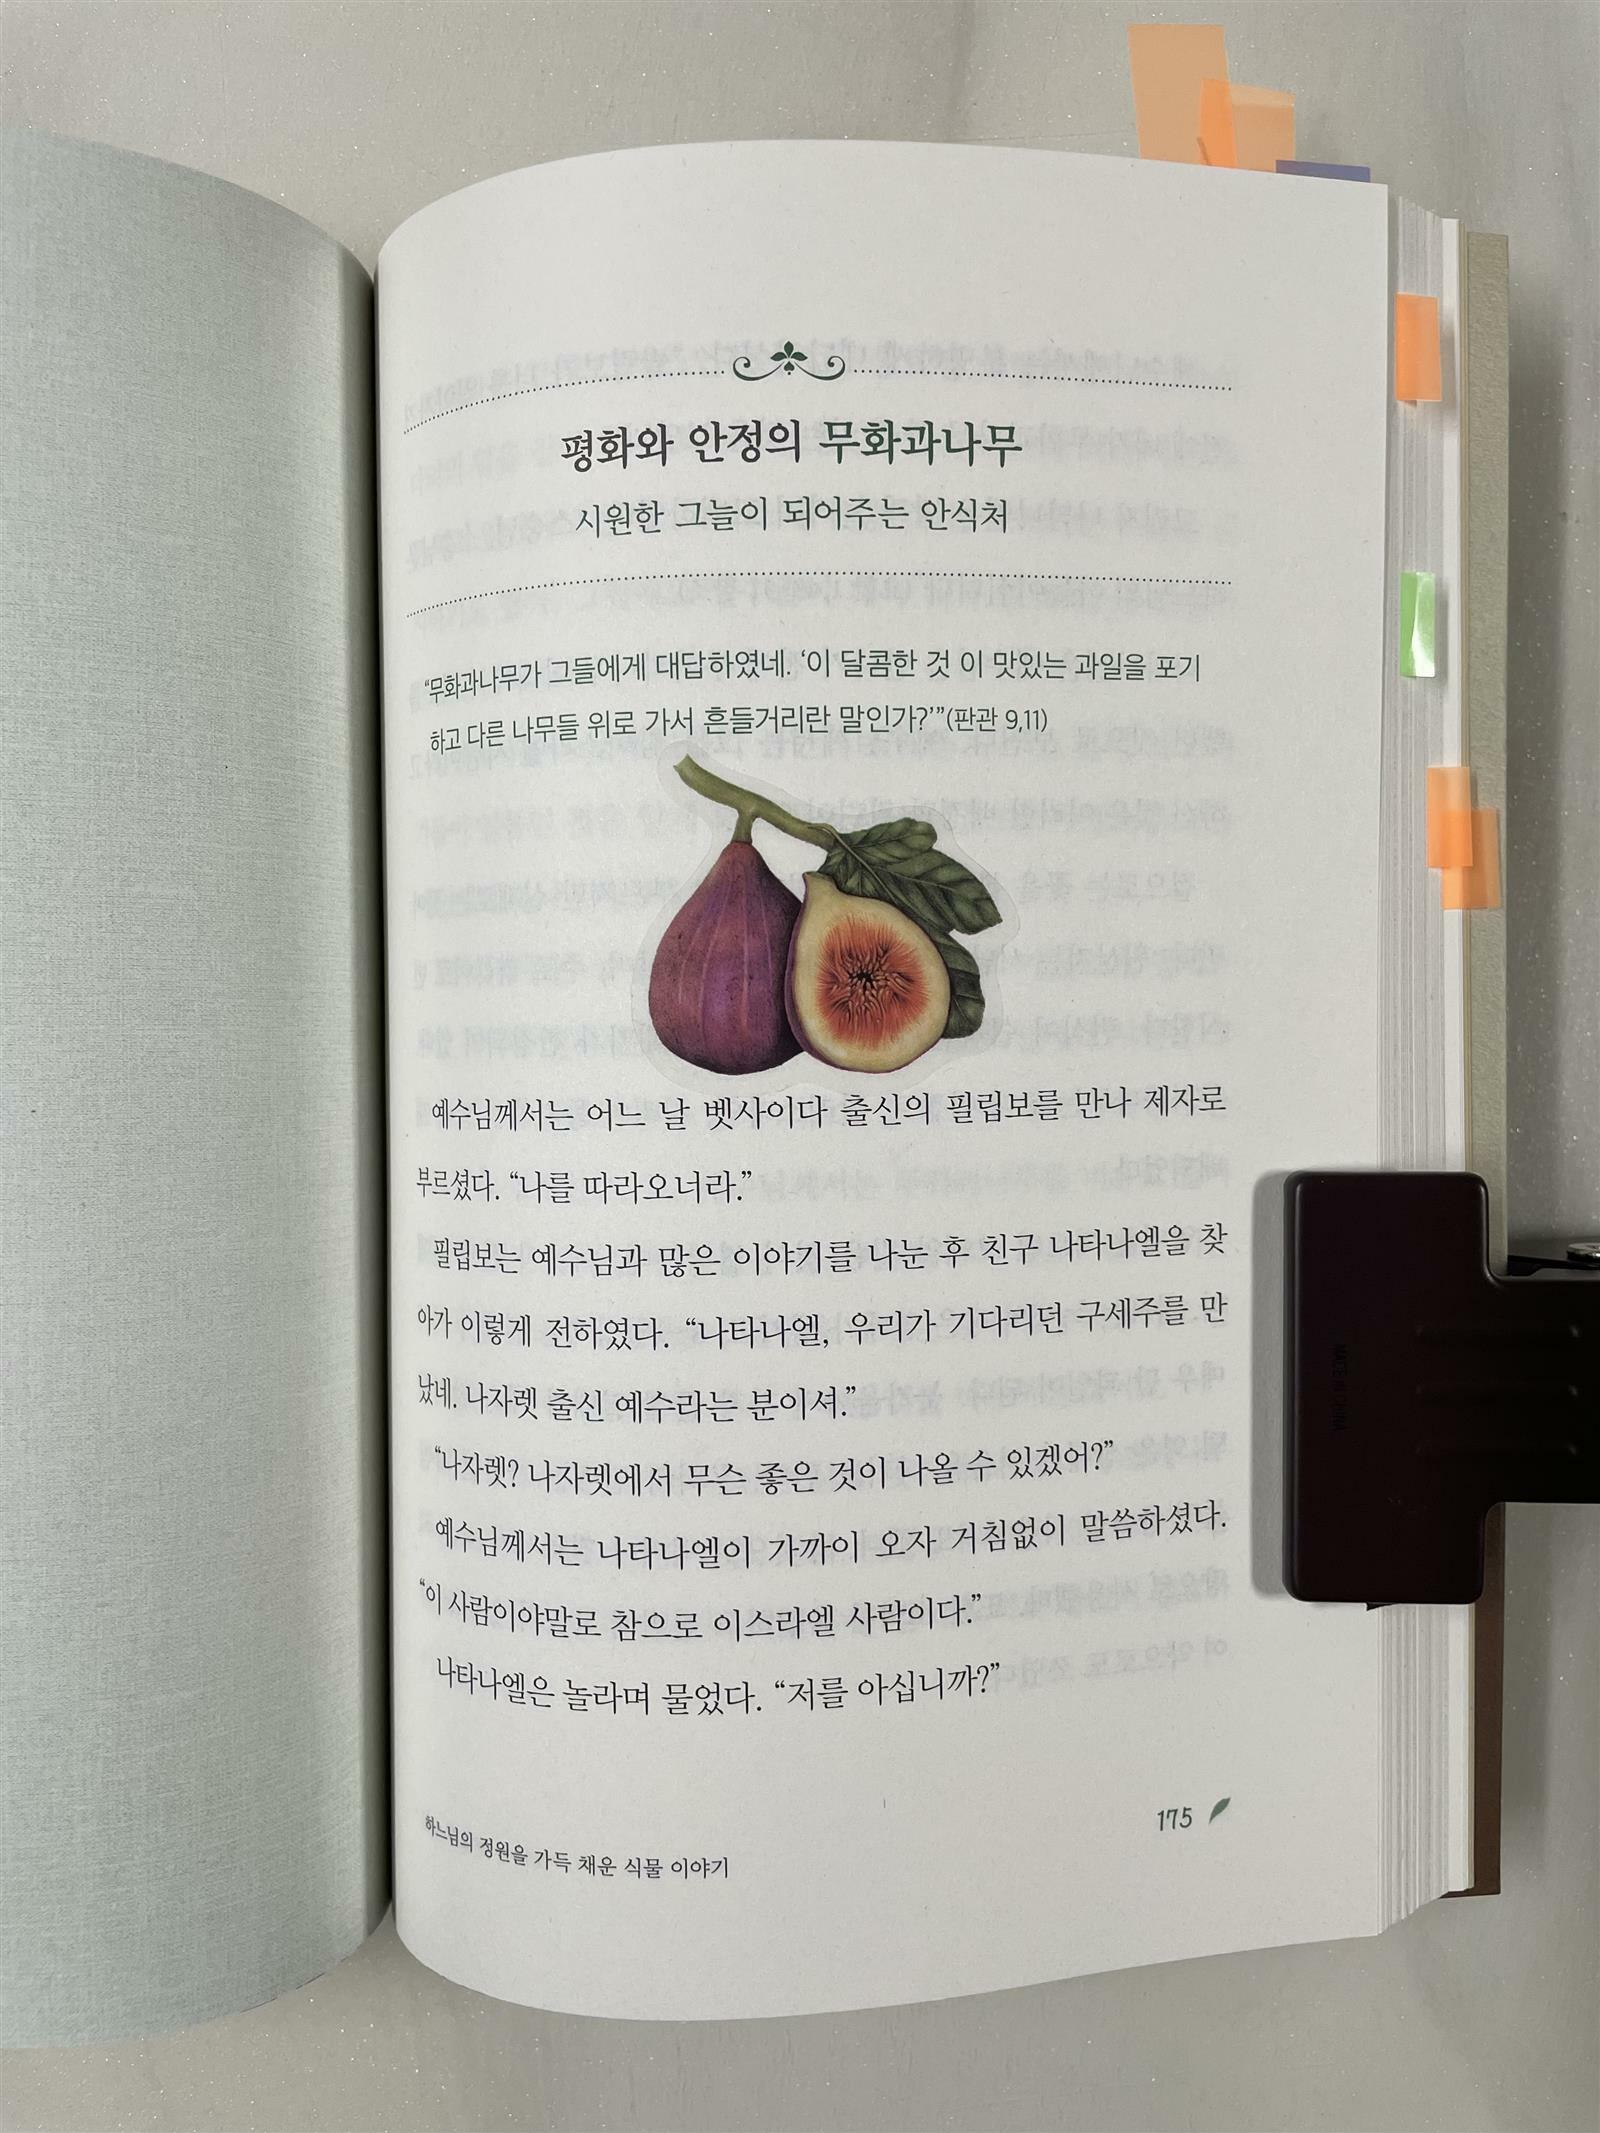 평화와 안정의 무화과나무
시원한 그늘이 되어주는 안식처
“무화과나무가 그들에게 대답하였네. ‘이 달콤한 것 이 맛있는 과일을 포기
하고 다른 나무들 위로 가서 흔들거리란 말인가?’”(판관 9,11)
예수님께서는 어느 날 벳사이다 출신의 필립보를 만나 제자로
부르셨다. “나를 따라오너라.”
필립보는 예수님과 많은 이야기를 나눈 후 친구 나타나엘을 찾
아가 이렇게 전하였다. “나타나엘, 우리가 기다리던 구세주를 만
났네. 나자렛 출신 예수라는 분이셔.”
“나자렛? 나자렛에서 무슨 좋은 것이 나올 수 있겠어?”
예수님께서는 나타나엘이 가까이 오자 거침없이 말씀하셨다.
“이 사람이야말로 참으로 이스라엘 사람이다.”
나타나엘은 놀라며 물었다. “저를 아십니까?”
하느님의 정원을 가득 채운 식물 이야기
175
MADE IN CHINA